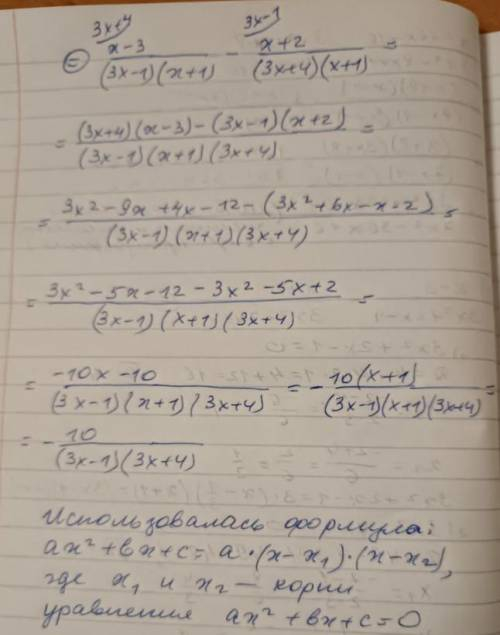 3x+4 3x-1
= (x-3)/((3x-1)(x+1)) - (x+2)/((3x+4)(x+1)) =
= ((3x+4)(x-3)-(3x-1)(x+2))/((3x-1)(x+1)(3x+4)) =
= (3x²-9x+4x-12-(3x²+6x-x-2))/((3x-1)(x+1)(3x+4)) =
= (3x²-5x-12-3x²-5x+2)/((3x-1)(x+1)(3x+4)) =
= (-10x-10)/((3x-1)(x+1)(3x+4)) = -10(x+1)/((3x-1)(x+1)(3x+4)) =
= -10/((3x-1)(3x+4))
Использовалась формула:
ax²+bx+c=a·(x-x₁)·(x-x₂),
где x₁ и x₂ — корни
уравнения ax²+bx+c=0